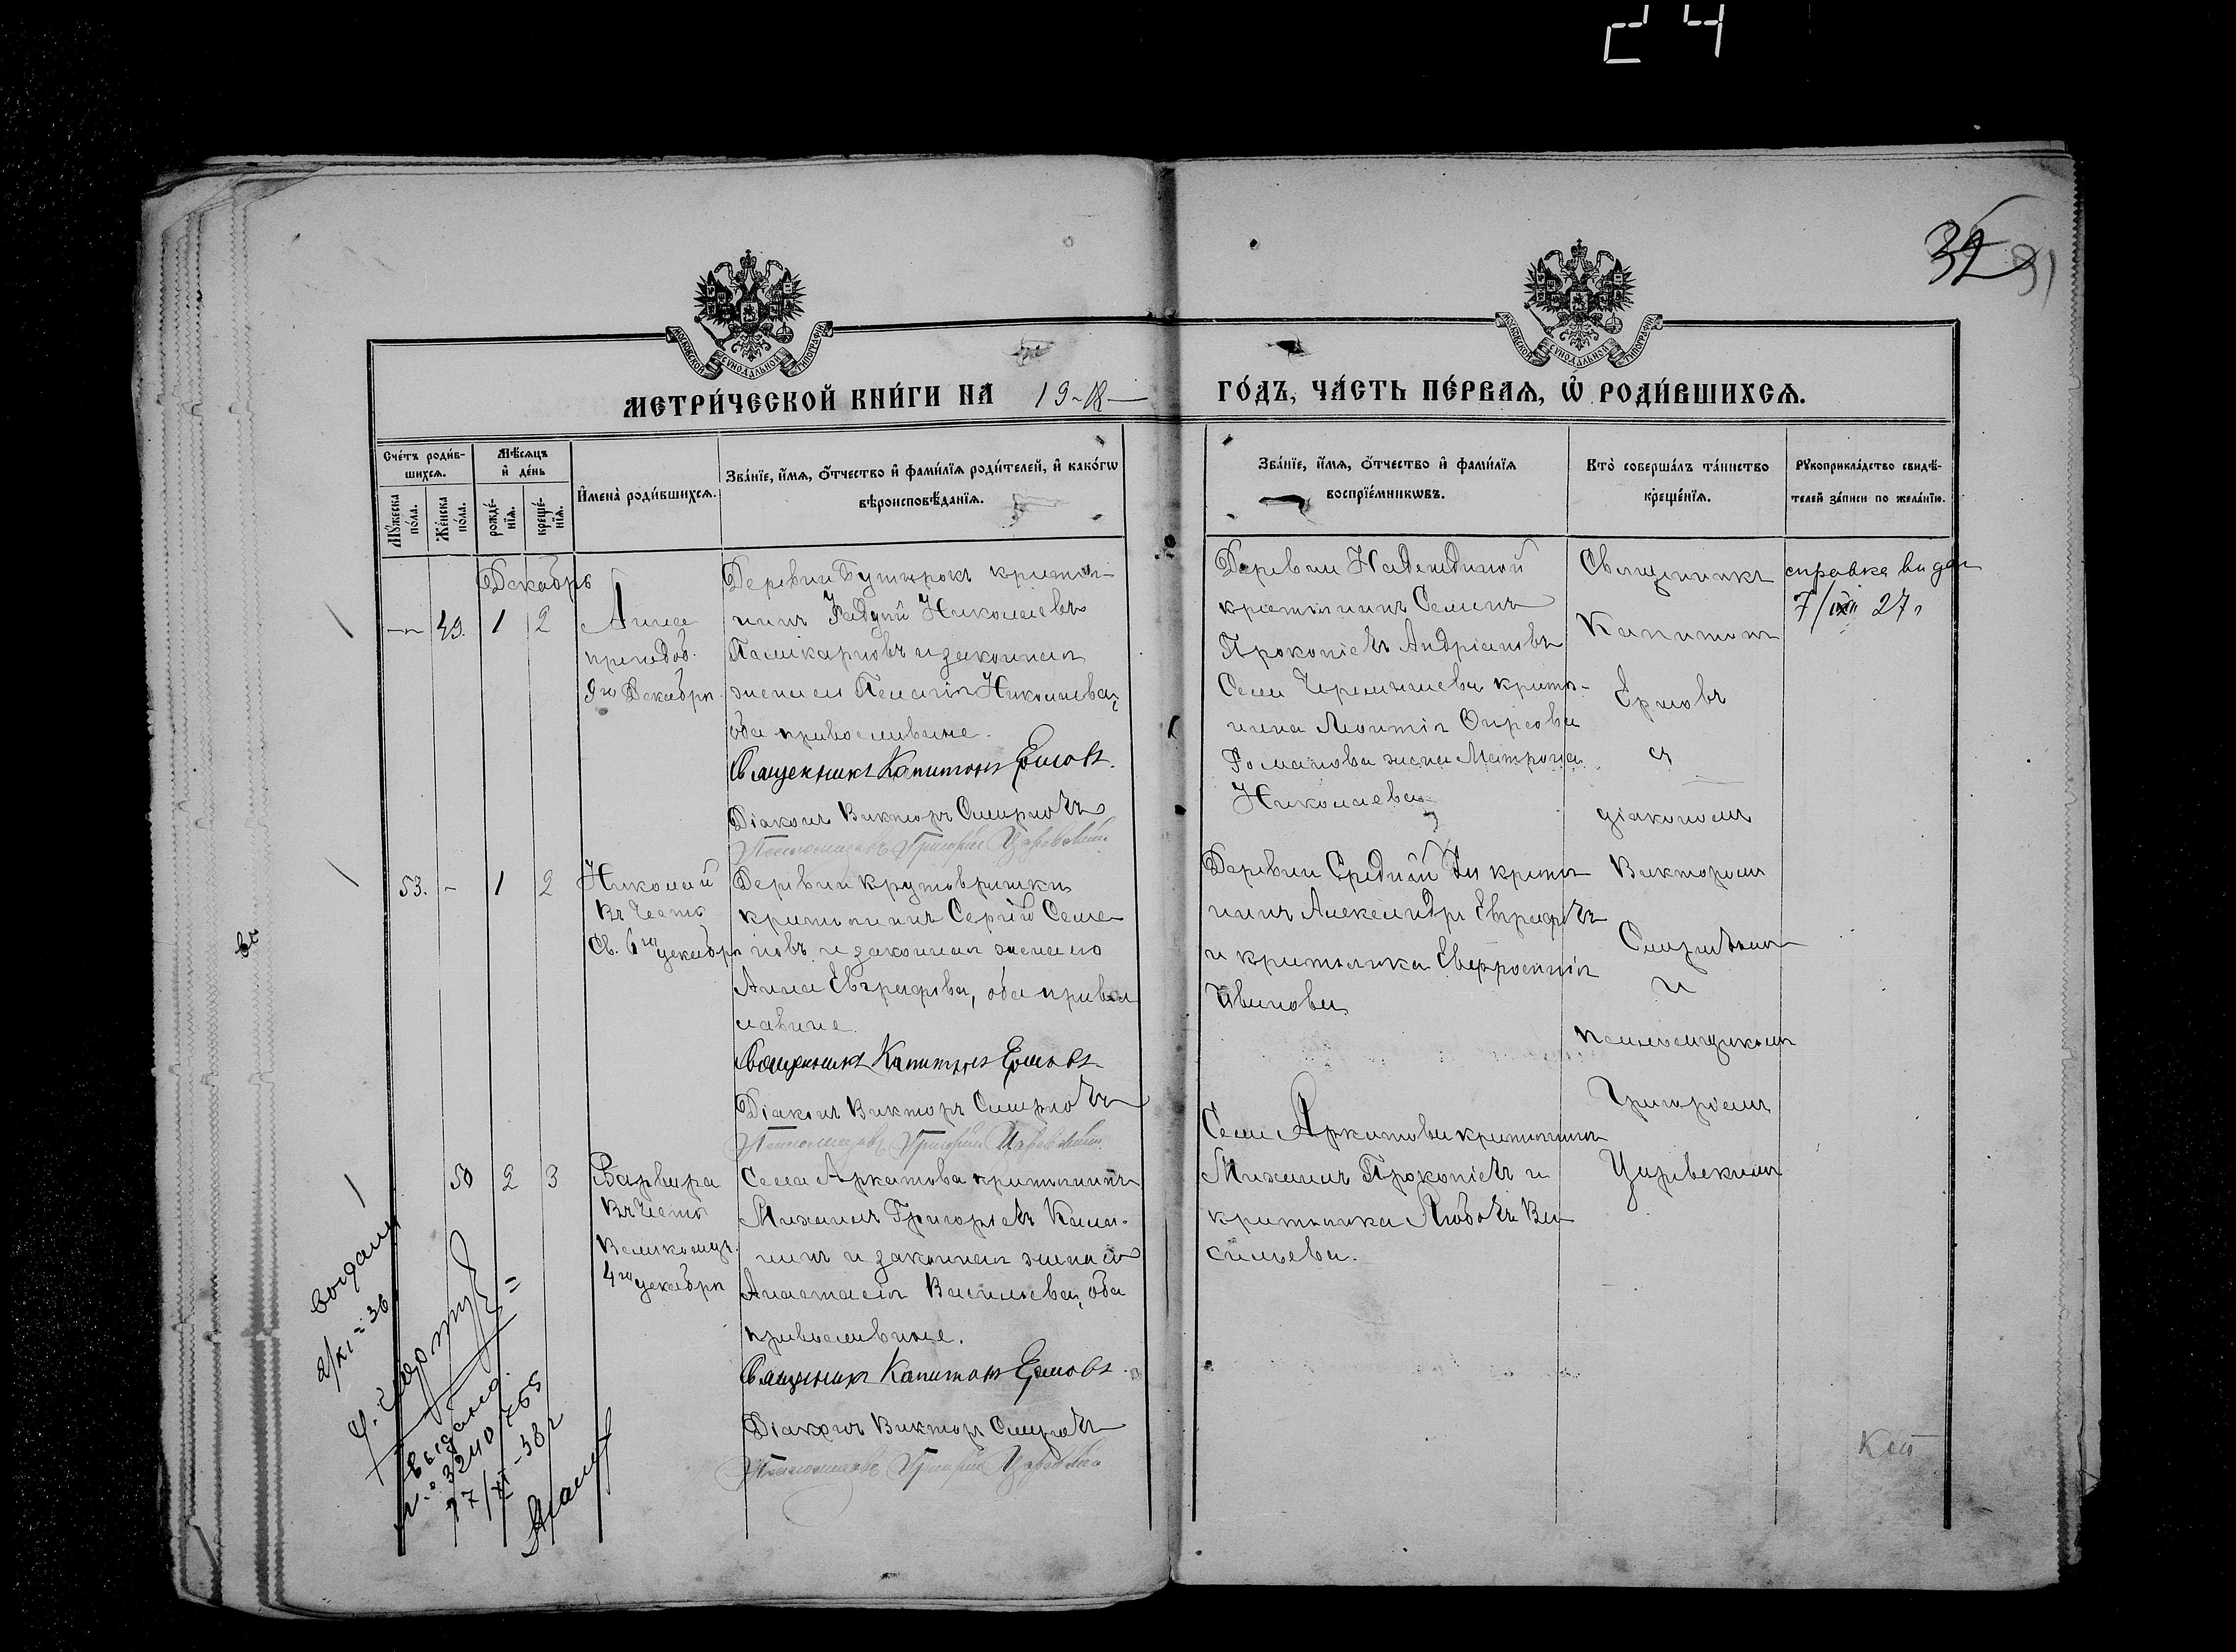 24
32
31
МОСКОВСКОЙ СѴНОДАЛЬНОЙ ТИПОГРАФІИ
МОСКОВСКОЙ СѴНОДАЛЬНОЙ ТИПОГРАФІИ
МЕТРИ́ЧЕСКОЙ КНИ́ГИ НА 19-18-
ГО́ДЪ, ЧА́СТЬ ПЕ́РВАЯ, Ѡ РОДИ́ВШИХСЯ.
Сче́тъ роди́в-
шихся.
Мѣ́сяцъ
и де́нь
Му́жеска по́ла.
Же́нска по́ла.
рожде́-нїя.
креще́-нїя.
Имена̀ роди́вшихся.
Зва́нїе, и́мя, о́тчество и фами́лїя роди́телей, и како́гѡ
вѣроисповѣ́данїя.
Зва́нїе, и́мя, о́тчество и фами́лїя
воспрїе́мникѡвъ.
Кто̀ соверша́лъ та́инство
креще́нїя.
Рукоприкла́дство свидѣ́-
телей за́писи по жела́нїю.
Декабрь
49. 1 2
Анна
препод.
9го Декабря
Деревни Бутырокъ крестья-
нинъ Николаевъ
Поликарповъ и законная
жена его Пелагія Николаева,
оба православные.
Священникъ Капитонъ Ермовъ.
Діаконъ Викторъ Смирновъ
Псаломщикъ Григорій Царевскій
Деревни Надеждиной
крестьянинъ Семенъ
Прокопіевъ Андріановъ
Села крестья-
нина
Романова жена Матрона
Николаева
Священникъ
Капитонъ
Ермовъ
съ
діакономъ
Викторомъ
Смирновымъ
и
псаломщикомъ
Григоріемъ
Царевскимъ
справка выдан
27г
53. - 1 2
Николай
Въ честь
Св. 6го декабря
Деревни Крутовражки
крестьянинъ Сергій Семе-
новъ и законная жена его
Анна Евграфова, оба право-
славные.
Священникъ Капитонъ Ермовъ
Діаконъ Викторъ Смирновъ
Псаломщикъ Григорій Царевскій
Деревни Средній крестья-
нинъ Александръ Евграфовъ
и крестьянка Евфросинія
Иванова
50 2 3
Варвара
Въ честь
Великомуч.
4го декабря
Села Аркатова крестьянинъ
Михаилъ Григорьевъ Кали-
нинъ и законная жена его
Анастасія Васильева, оба
православные.
Священникъ Капитонъ Ермовъ.
Діаконъ Викторъ Смирновъ
Псаломщикъ Григорій Царевскій
Села Аркатова крестьянинъ
Михаилъ Прокопіевъ и
крестьянка Любовь Ва-
сильева.
выдан
2/XI-36
Выдана
№ 3240765
17/XI-38г